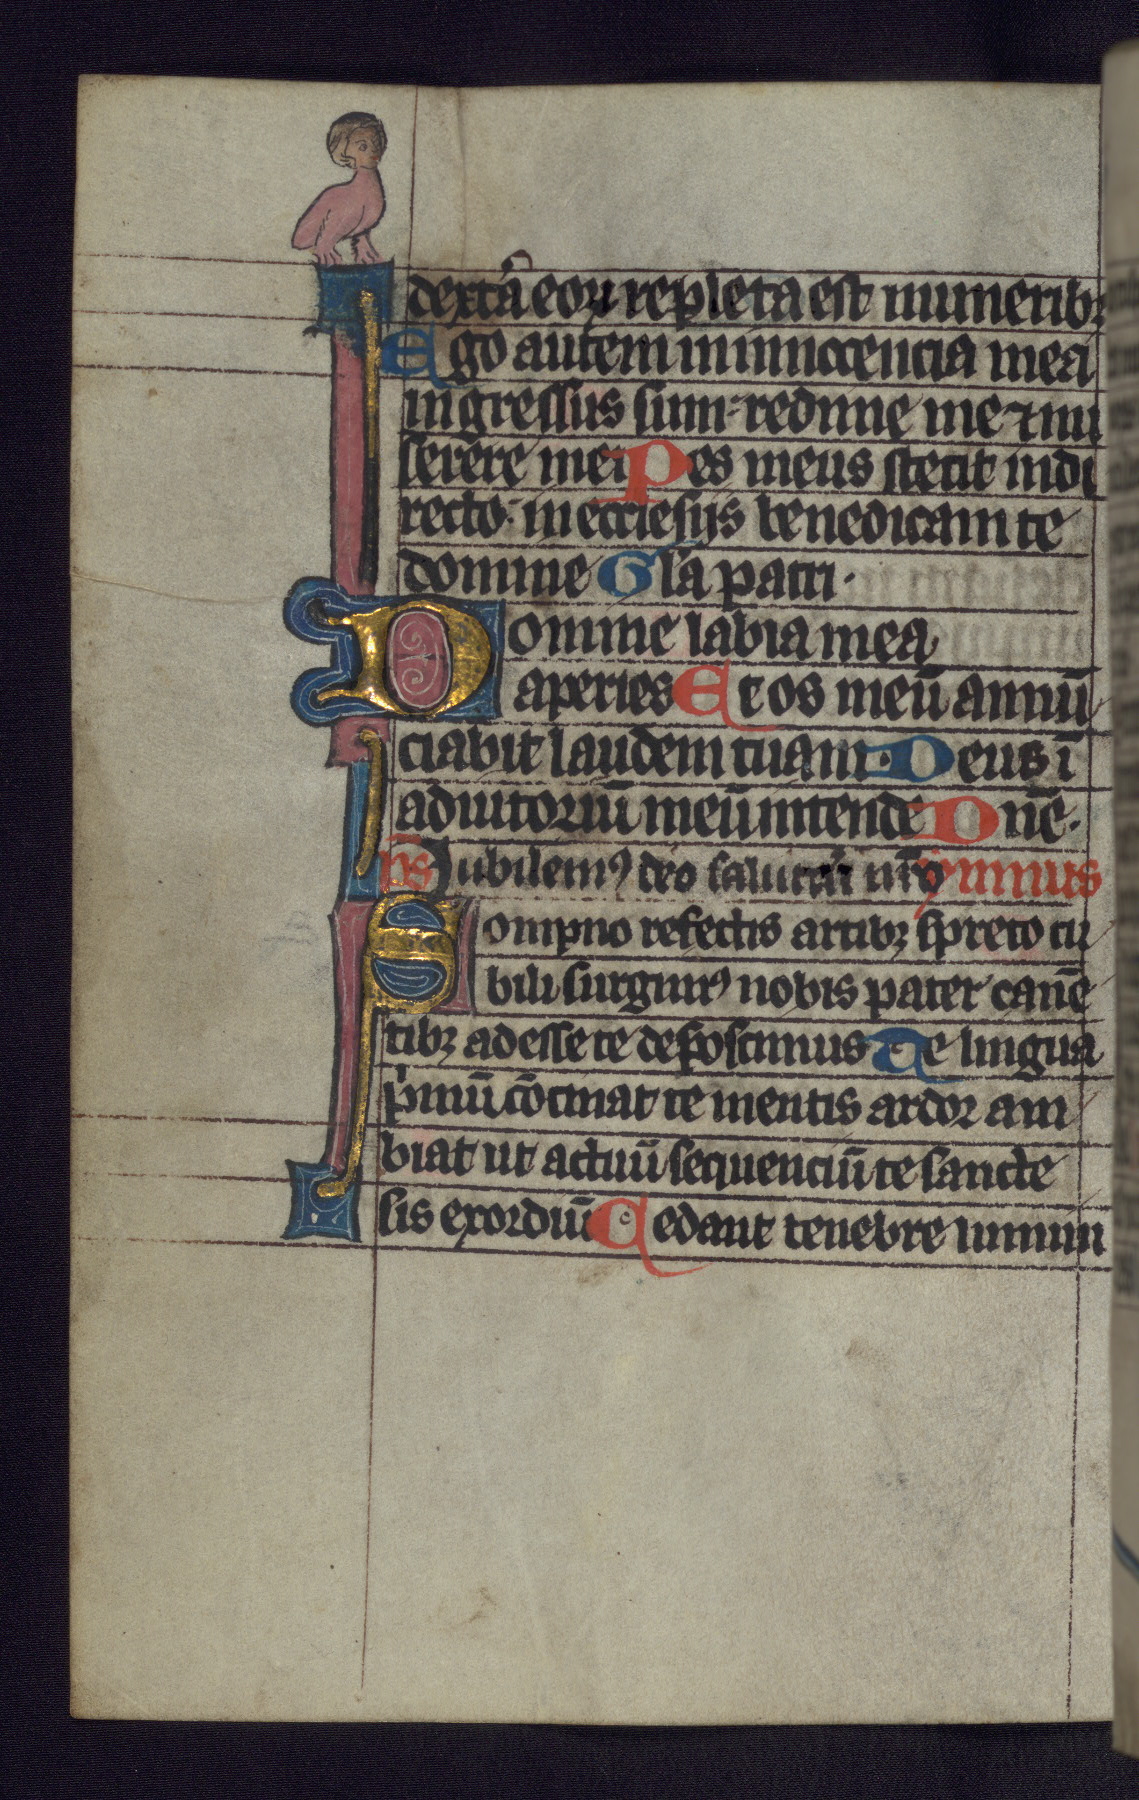 dextͣa eoꝝ repleta est muneribꝫ
Ego autem in innocencia mea
ingressus sum: redime me ⁊ mi
serere mei Pes meus stetit in di
recto: in ecclesijs benedicam te
domine Gl̄a patri ·
Domine labia mea
aperies Et os meū annū
ciabit laudem tuam · Deus ī
adiutoriū meū intende Dn̄e ·
p̄s Jubilemꝰ deo salutari nr̄o ymnus
Sompno refectis artibꝫ spreto cu
bili surgimꝰ nobis pater canē
tibꝫ adesse te deposcimus Te lingua
pͥmū cōcinat te mentis ardor am
biat ut actuū sequenciū te sancte
sis exordiū Cedant tenebre lumini